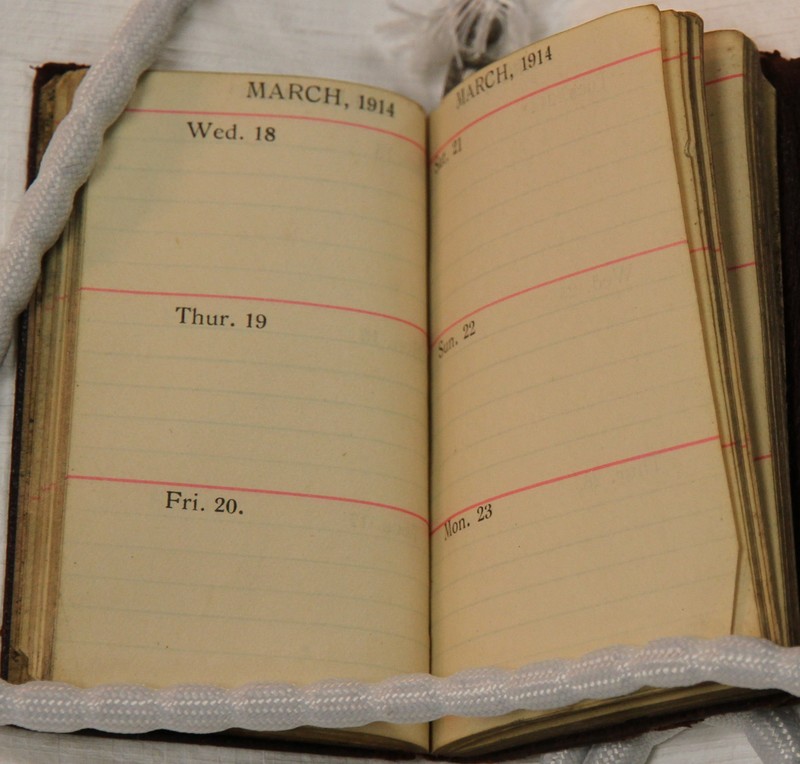 MARCH, 1914
Wed. 18
Thur. 19
Fri. 20.
MARCH, 1914
Sat. 21
Sun. 22
Mon. 23